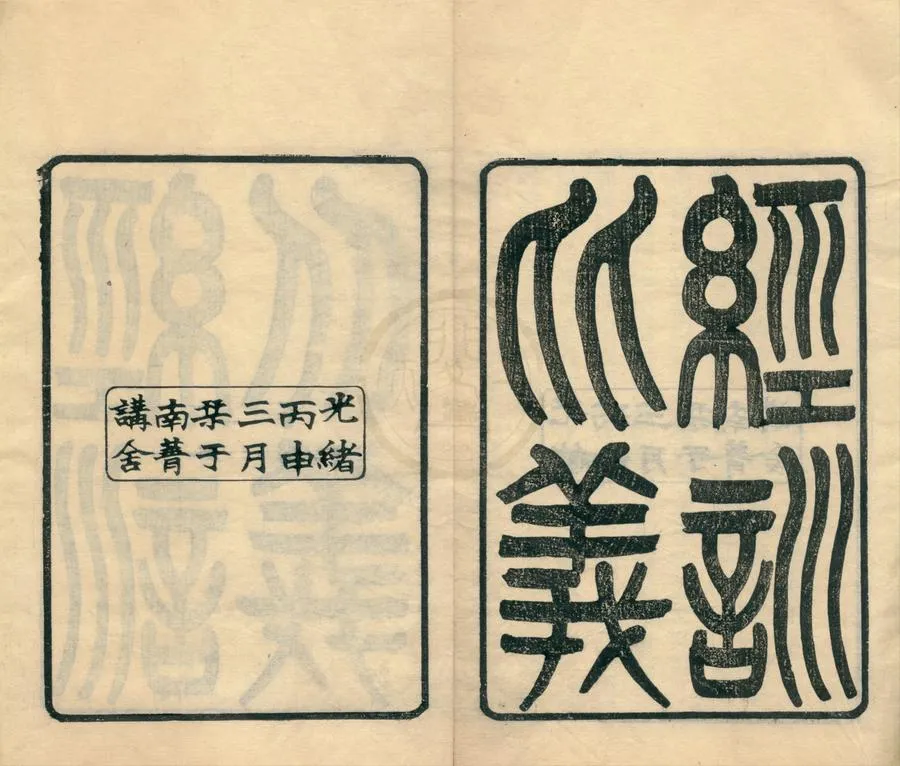 經訓
比義
光緒
丙申
三月
栞于
南菁
講舍